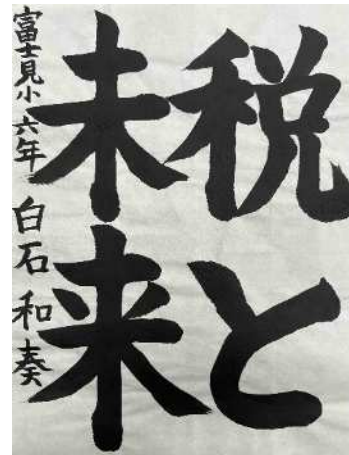 税と
未来
富士見小六年 白石和奏